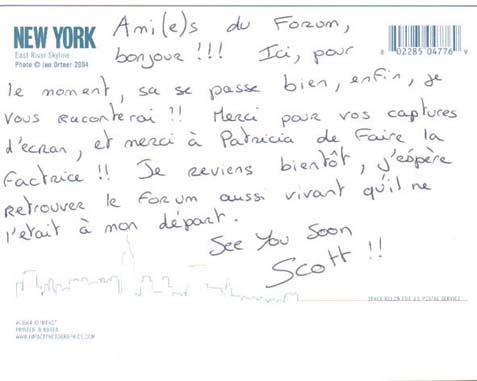 NEW YORK
East River Skyline
Photo © Jon Ortner 2004
8 02285 04776 9
Ami(e)s du Forum,
bonjour !!! Ici, pour
le moment, sa se passe bien, enfin, je
vous raconterai !! Merci pour vos captures
d'écran, et merci à Patricia de faire la
factrice !! Je reviens bientôt, j'espère
retrouver le forum aussi vivant qu'il ne
l'etait à mon départ.
See You Soon
Scott !!
SPACE BELOW FOR U.S. POSTAL SERVICE
PRINTED IN KOREA
WWW.IMPACTPHOTOGRAPHICS.COM